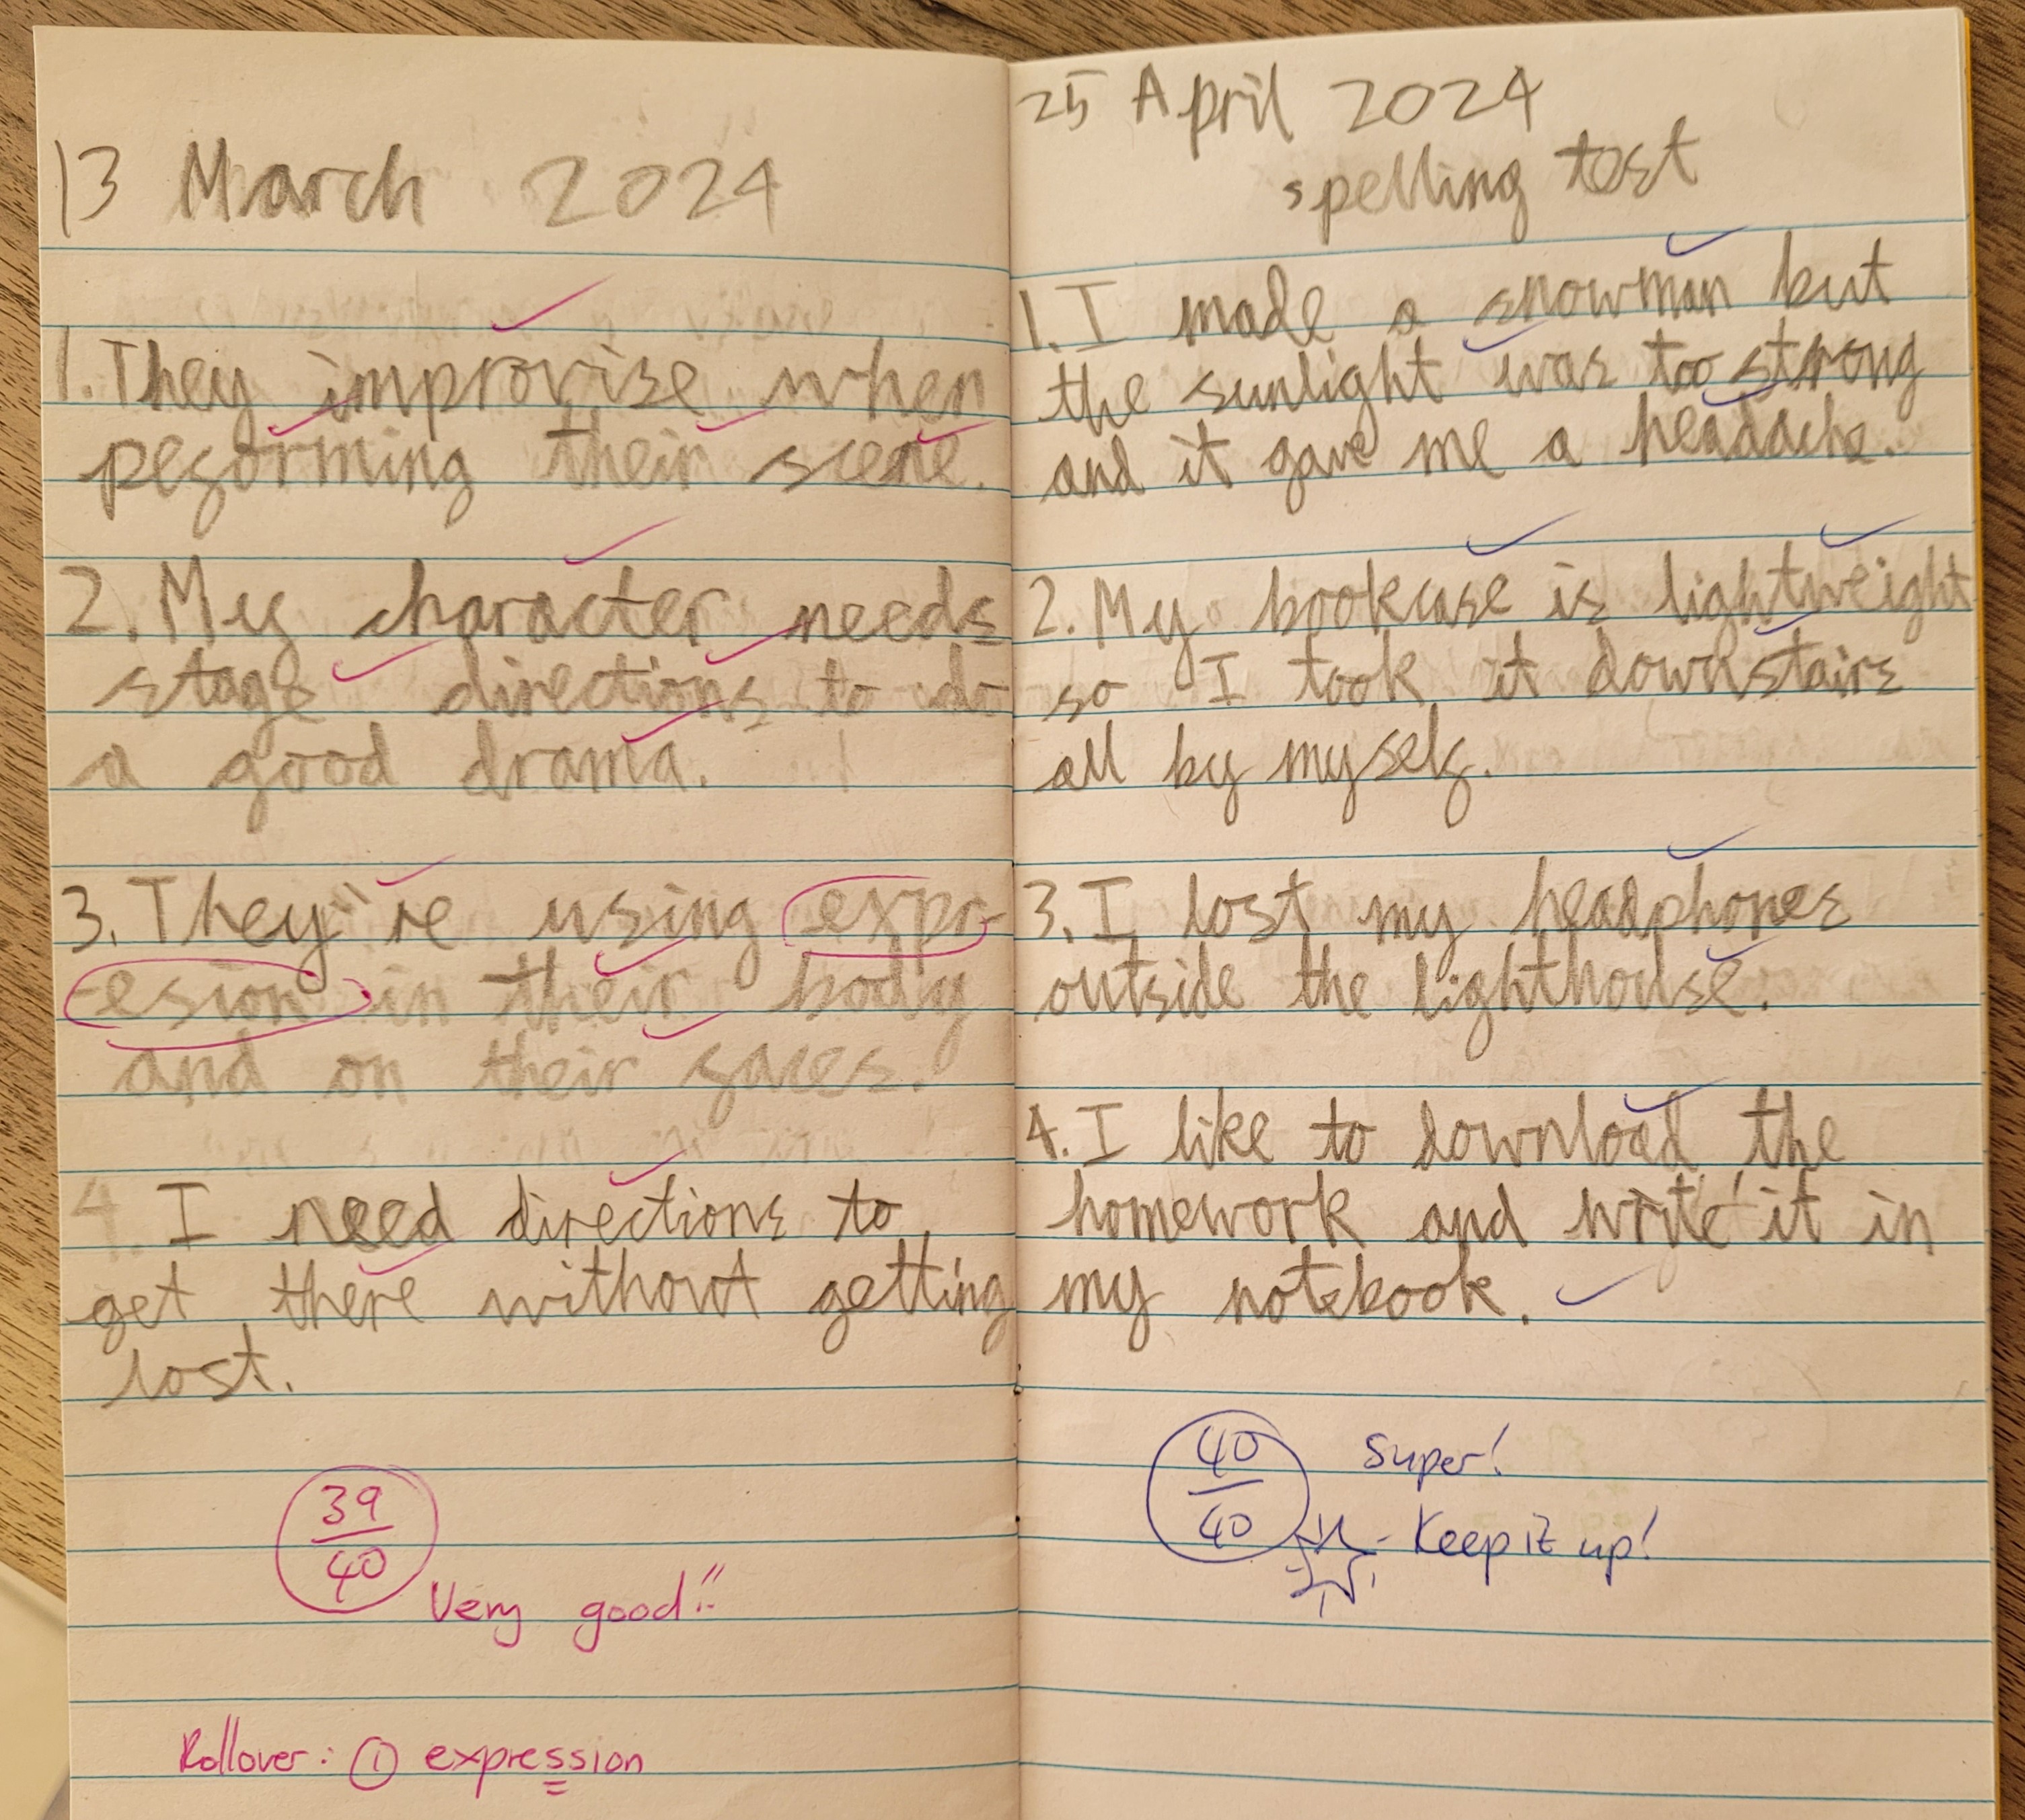 13 March 2024
1. They improvise when
performing their scene.
2. My character needs
stage directions to do
a good drama.
3. They're using expr-
-esion in their body
and on their faces.
4. I need directions to
get there without getting
lost.
39
40
Very good!!
Rollover: ① expression
25 April 2024
spelling test
1. I made a snowman but
the sunlight was too strong
and it gave me a headache.
2. My bookcase is lightweight
so I took it downstairs
all by myself.
3. I lost my headphones
outside the lighthouse.
4. I like to download the
homework and write it in
my notebook.
40
40
Super!
Keep it up!